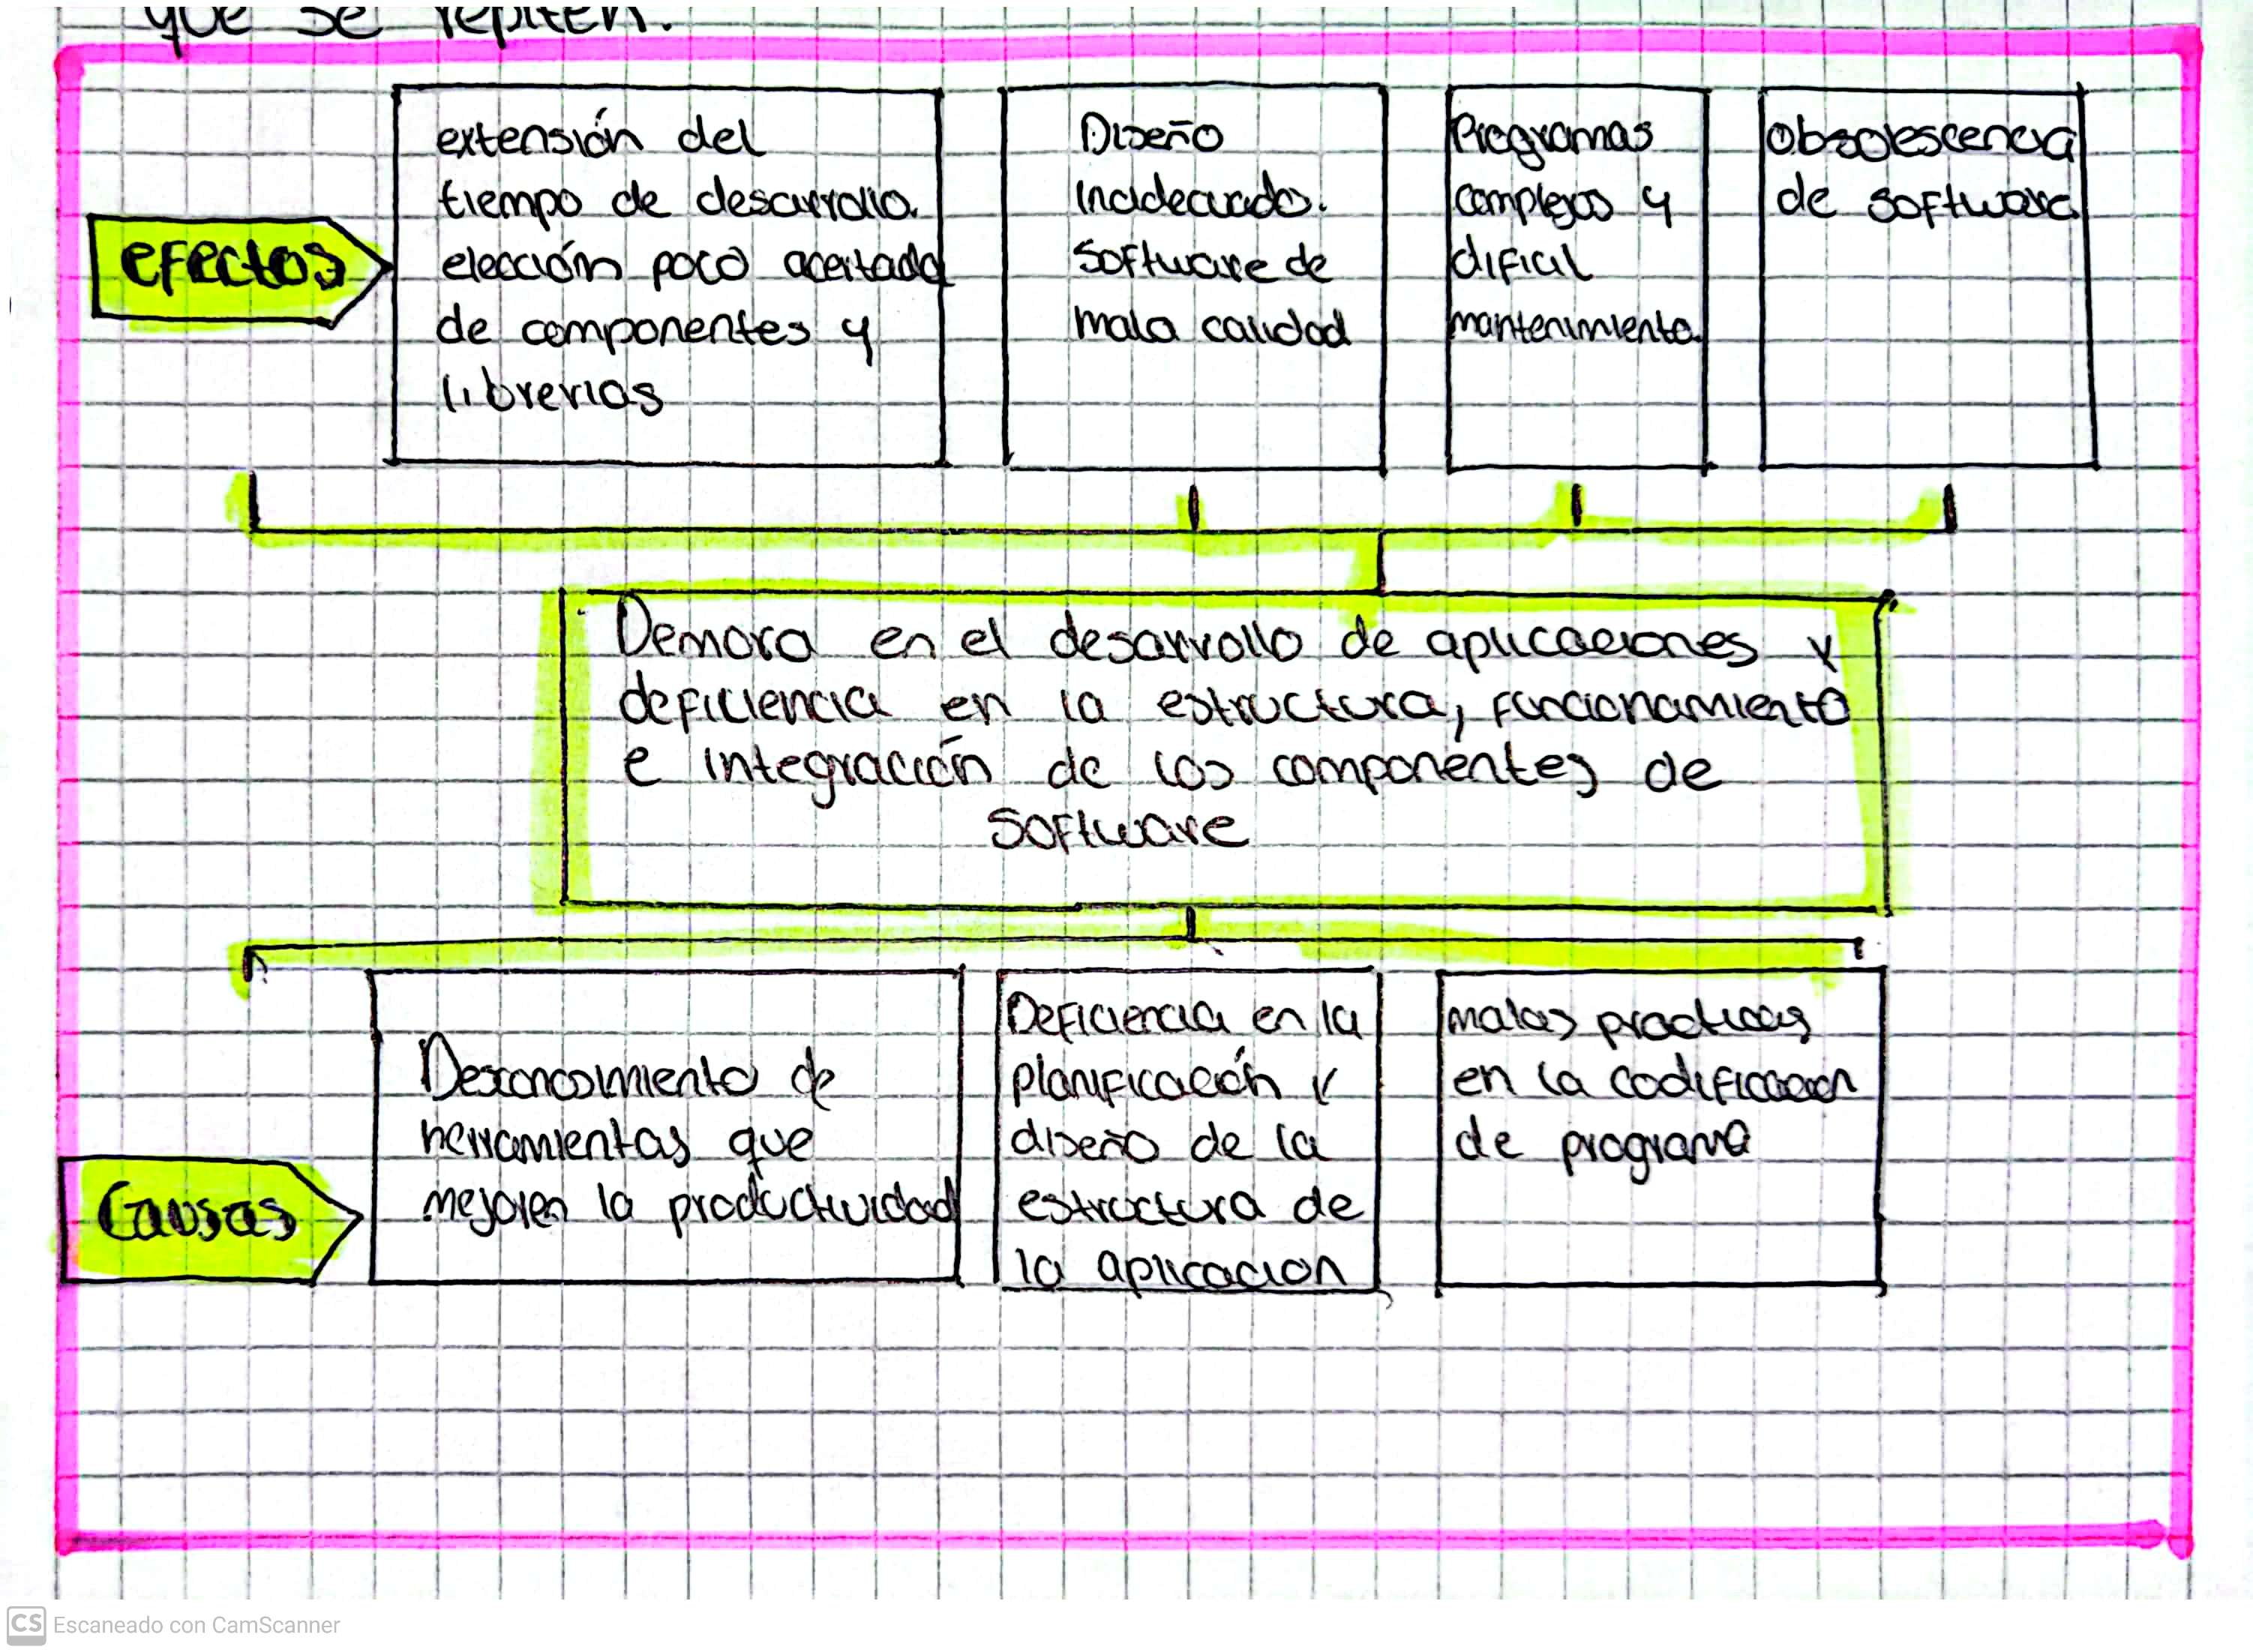 que se repiten.
efectos
extensión del
tiempo de desarrollo.
elección poco acertada
de componentes y
librerias
Diseño
inadecuado.
Software de
mala calidad
Programas
complejos y
dificil
mantenimiento.
Obsolescencia
de software
Demora en el desarrollo de aplicaciones y
deficiencia en la estructura, funcionamiento
e integración de los componentes de
software
Causas
Desconocimiento de
herramientas que
mejoren la productividad
Deficiencia en la
planificación y
diseño de la
estructura de
la aplicacion
malas practicas
en la codificacion
de programa
CS Escaneado con CamScanner